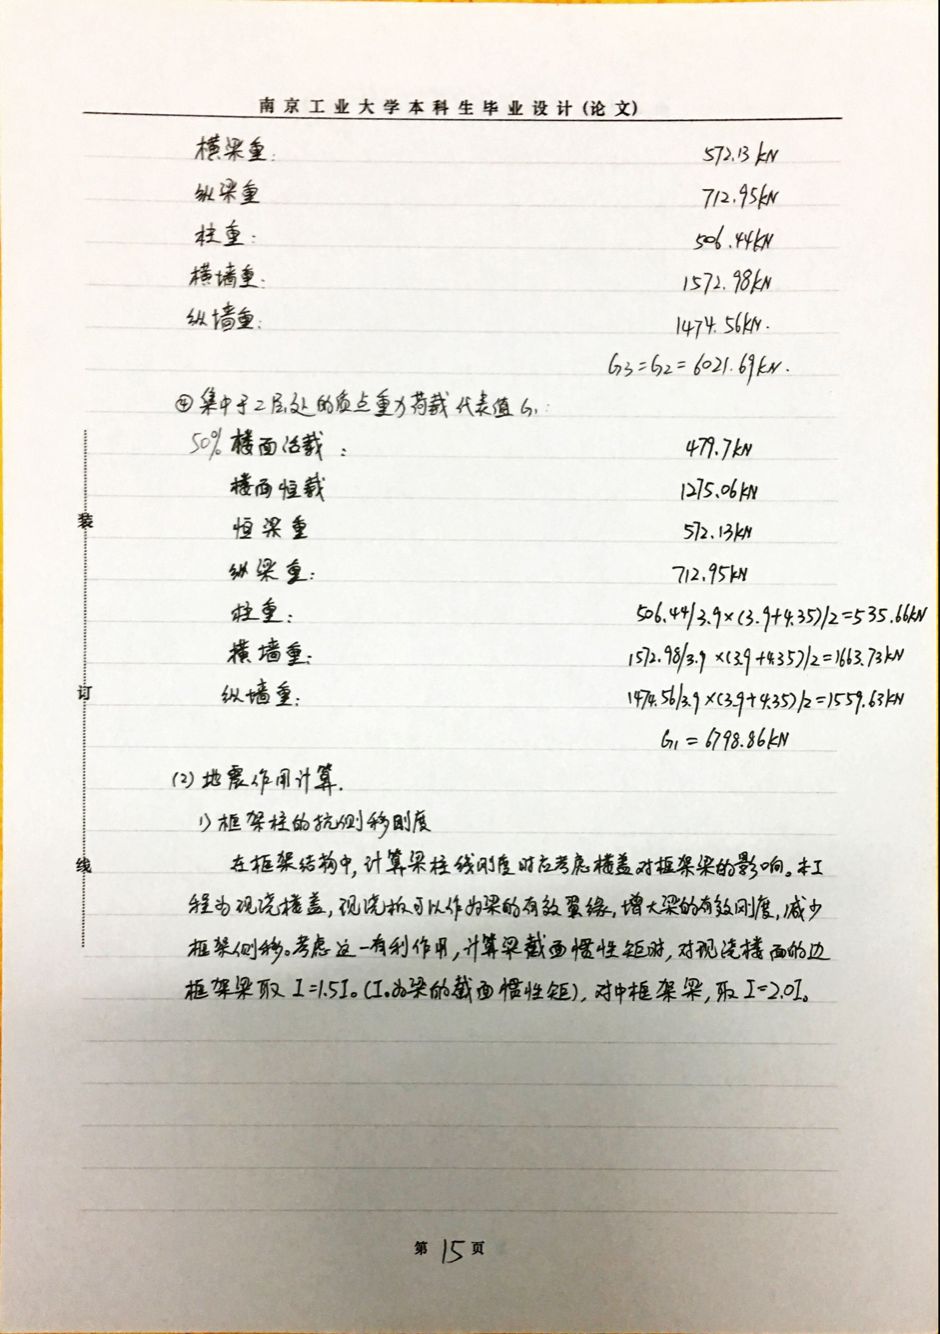 南京工业大学本科生毕业设计(论文)
横梁重: 572.13kN
纵梁重 712.95kN
柱重: 506.44kN
横墙重: 1572.98kN
纵墙重: 1474.56kN.
G3=G2=6021.69kN.
④集中于2层处的质点重力荷载代表值G1:
50%楼面活载: 479.7kN
楼面恒载 1275.06kN
恒梁重 572.13kN
纵梁重: 712.95kN
柱重: 506.44/3.9×(3.9+4.35)/2=535.66kN
横墙重: 1572.98/3.9×(3.9+4.35)/2=1663.73kN
纵墙重: 1474.56/3.9×(3.9+4.35)/2=1559.63kN
G1=6798.86kN
(2)地震作用计算.
1)框架柱的抗侧移刚度
在框架结构中,计算梁柱线刚度时应考虑楼盖对框架梁的影响。本工
程为现浇楼盖,现浇板可以作为梁的有效翼缘,增大梁的有效刚度,减少
框架侧移。考虑这一有利作用,计算梁截面惯性矩时,对现浇楼面的边
框架梁取I=1.5I。(I。为梁的截面惯性矩),对中框架梁,取I=2.0I。
装
订
线
第15页